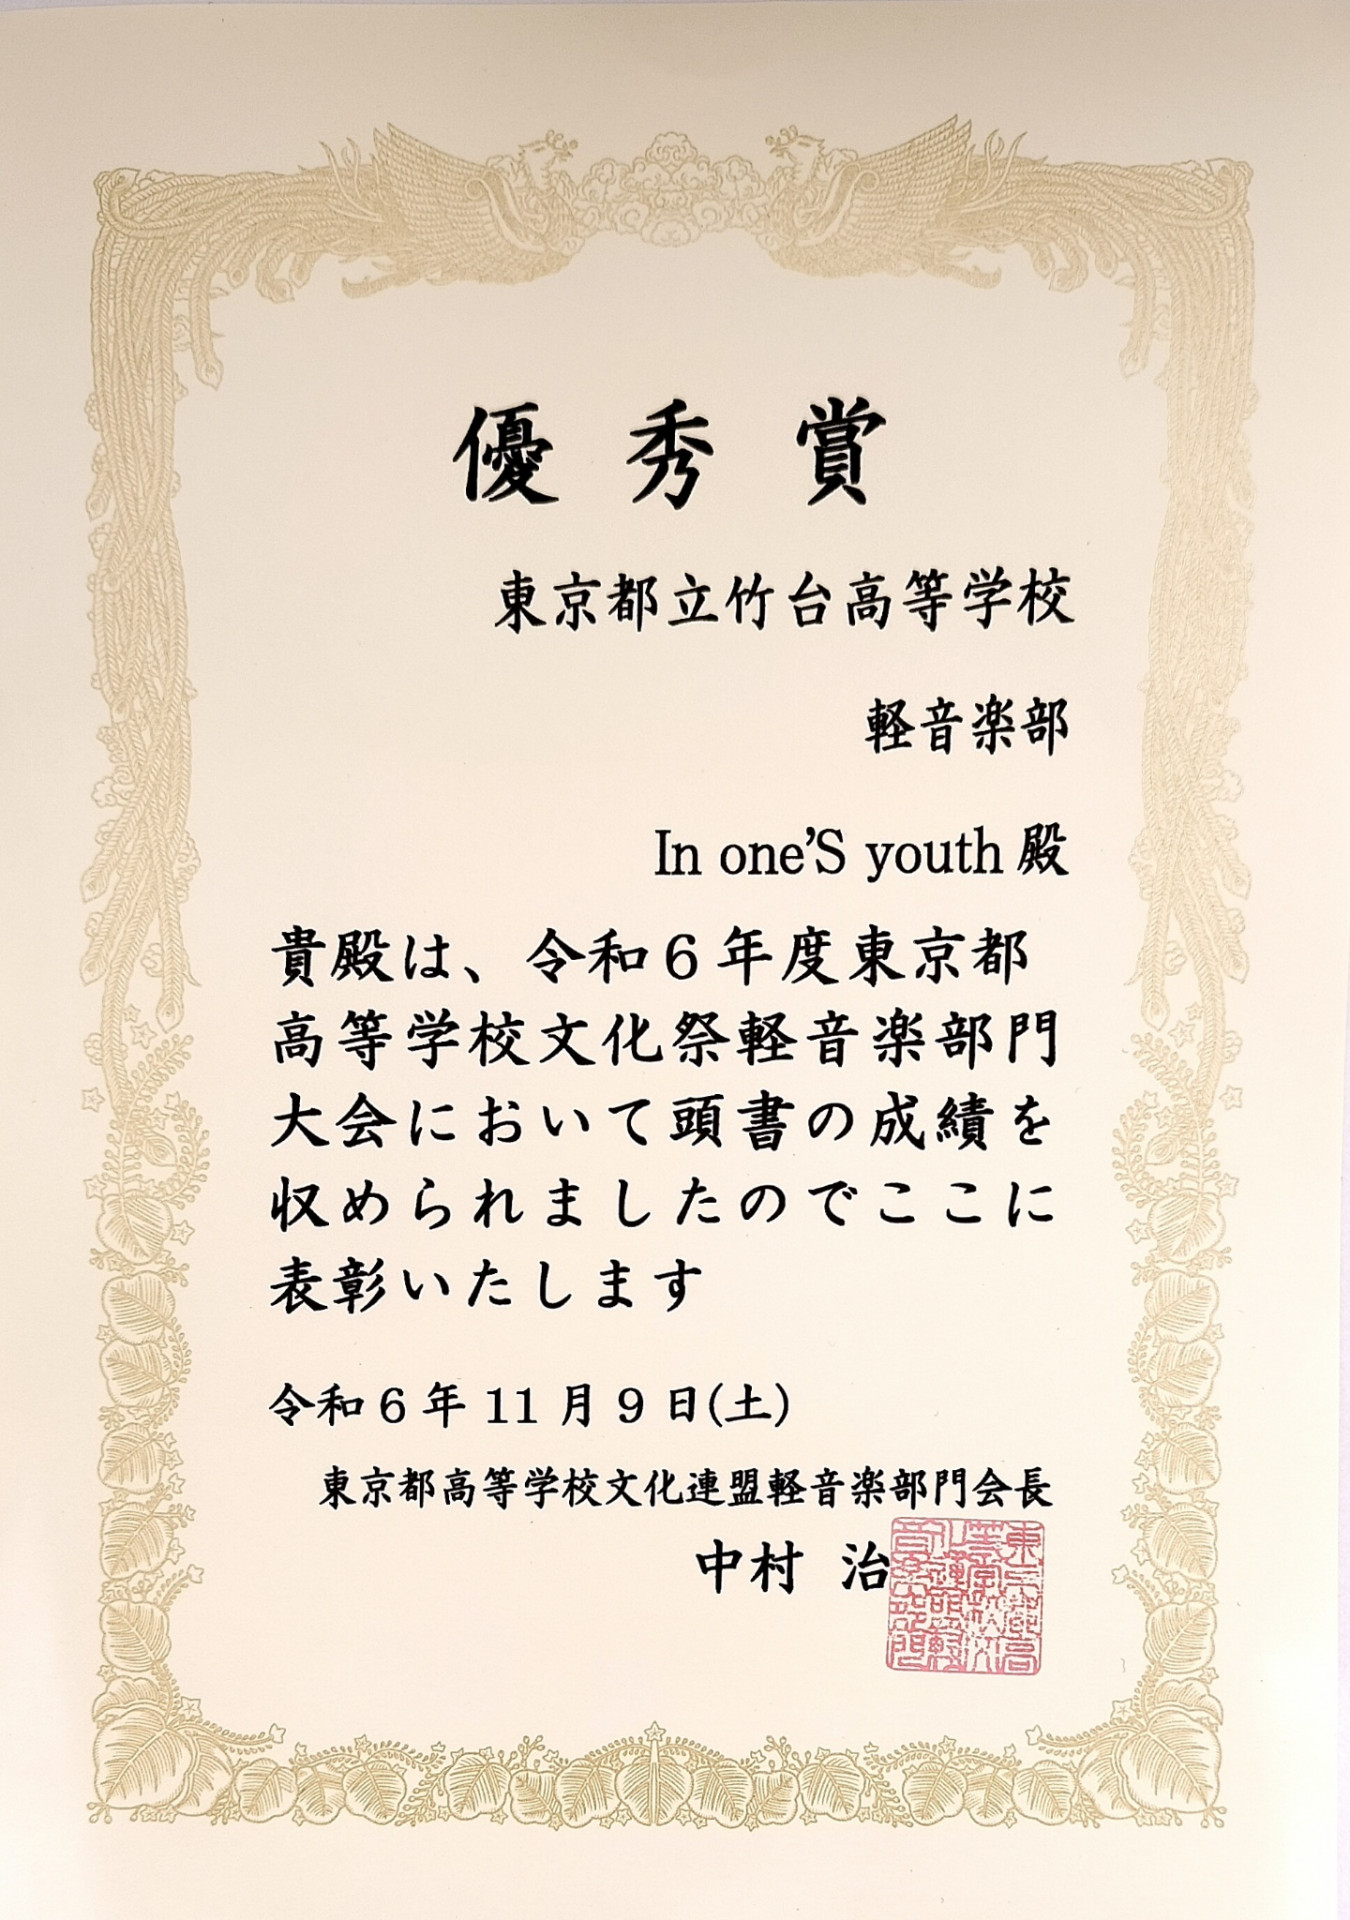 優秀賞
東京都立竹台高等学校
軽音楽部
In one’S youth 殿
貴殿は、令和６年度東京都
高等学校文化祭軽音楽部門
大会において頭書の成績を
収められましたのでここに
表彰いたします
令和 6 年 11 月 9 日(土)
東京都高等学校文化連盟軽音楽部門会長
中村 治